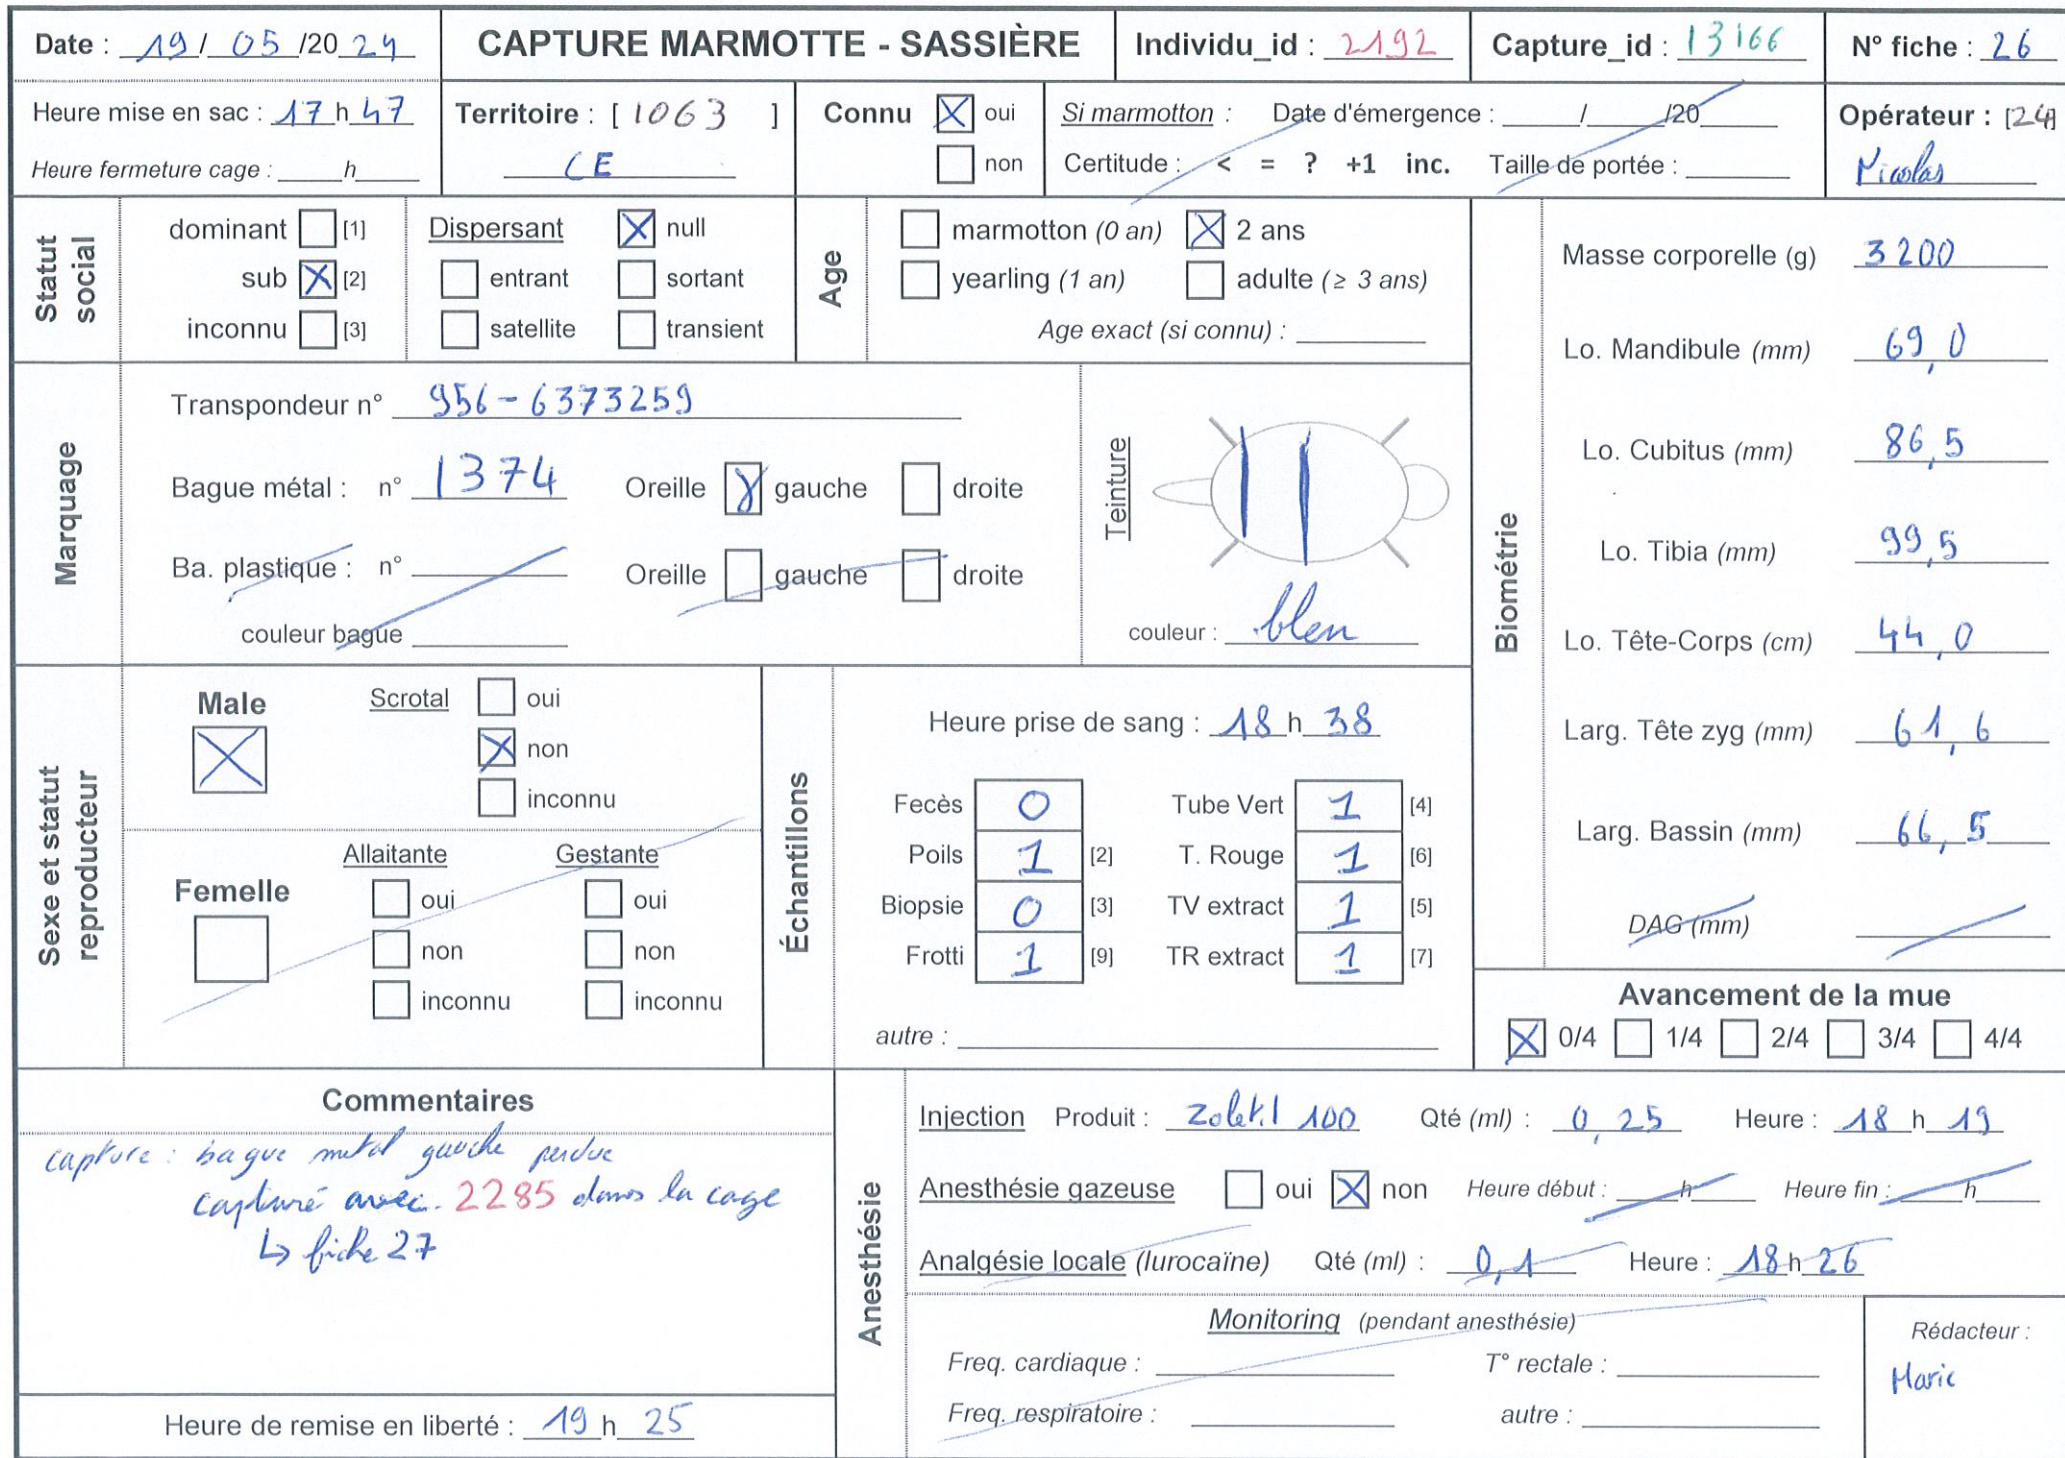 Date : 19 / 05 /20 24 CAPTURE MARMOTTE - SASSIÈRE Individu_id : 2192 Capture_id : 13166 N° fiche : 26
Heure mise en sac : 17 h 47 Territoire : [ 1063 ] Connu ☒ oui Si marmotton : Date d'émergence : ____/____/20____ Opérateur : [24]
Heure fermeture cage : ____h____ CE ☐ non Certitude : < = ? +1 inc. Taille de portée : ____ Nicolas
Statut social
dominant ☐ [1] Dispersant ☒ null
sub ☒ [2] ☐ entrant ☐ sortant
inconnu ☐ [3] ☐ satellite ☐ transient
Age
☐ marmotton (0 an) ☒ 2 ans
☐ yearling (1 an) ☐ adulte (≥ 3 ans)
Age exact (si connu) : ____
Marquage
Transpondeur n° 956-6373259
Bague métal : n° 1374 Oreille ☒ gauche ☐ droite
Ba. plastique : n° ____ Oreille ☐ gauche ☐ droite
couleur bague ____
Teinture
couleur : bleu
Biométrie
Masse corporelle (g) 3200
Lo. Mandibule (mm) 69,0
Lo. Cubitus (mm) 86,5
Lo. Tibia (mm) 99,5
Lo. Tête-Corps (cm) 44,0
Larg. Tête zyg (mm) 61,6
Larg. Bassin (mm) 66,5
DAG (mm)
Sexe et statut reproducteur
Male ☒ Scrotal ☐ oui
☒ non
☐ inconnu
Allaitante Gestante
Femelle ☐ ☐ oui ☐ oui
☐ non ☐ non
☐ inconnu ☐ inconnu
Échantillons
Heure prise de sang : 18 h 38
Fecès 0 Tube Vert 1 [4]
Poils 1 [2] T. Rouge 1 [6]
Biopsie 0 [3] TV extract 1 [5]
Frotti 1 [9] TR extract 1 [7]
autre : ____
Avancement de la mue
☒ 0/4 ☐ 1/4 ☐ 2/4 ☐ 3/4 ☐ 4/4
Commentaires
capture : bague metal gauche perdue
capturé avec 2285 dans la cage
↳ fiche 27
Heure de remise en liberté : 19 h 25
Anesthésie
Injection Produit : Zoletil 100 Qté (ml) : 0,25 Heure : 18 h 19
Anesthésie gazeuse ☐ oui ☒ non Heure début : ____h____ Heure fin : ____h____
Analgésie locale (lurocaïne) Qté (ml) : 0,1 Heure : 18 h 26
Monitoring (pendant anesthésie)
Freq. cardiaque : ____ T° rectale : ____
Freq. respiratoire : ____ autre : ____
Rédacteur :
Marie